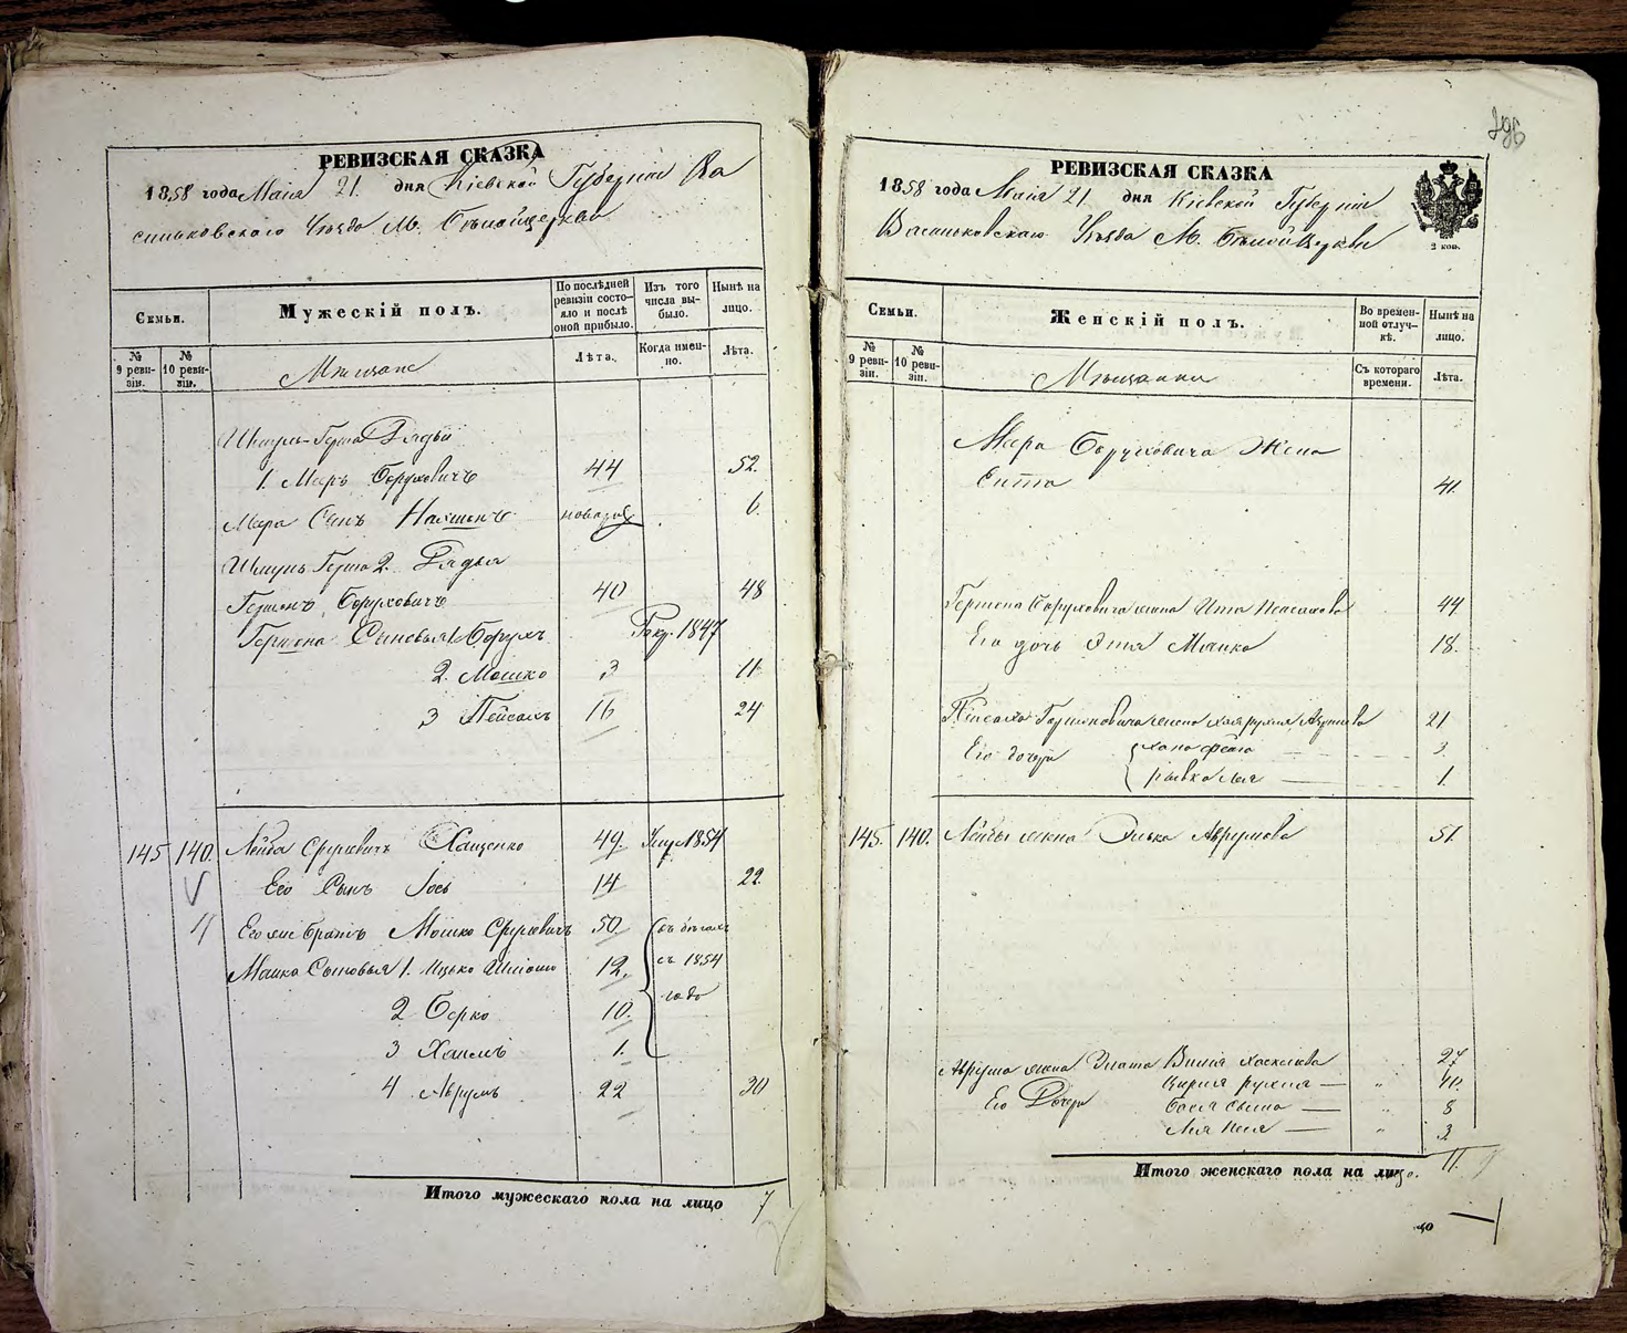 РЕВИЗСКАЯ СКАЗКА
1858 года Маія 21 дня Кіевской Губерніи Ва
сильковского Уѣзда М. Бѣлойцеркви
Семьи.
Мужескій полъ.
По послѣдней ревизіи состояло и послѣ оной прибыло.
Изъ того числа выбыло.
Нынѣ на лицо.
№ 9 ревизіи.
№ 10 ревизіи.
Мѣщане
Лѣта.
Когда именно.
Лѣта.
Шмуль-Герша Дядьи
1. Мееръ Боруховичъ 44 52.
Меера Сынъ Нахменъ 6
Шмуль Герша 2. Дядья
Гершенъ Боруховичъ 40 48
Гершена Сыновья 1. Борухъ 1847
2. Мошко 3 11
3 Пейсахъ 16 24
145 140. Лейба Сруловичъ Хащенко 49. Умре 1854
Его Сынъ Іось 14 22.
Его же братъ Мошко Сруловичъ 50. въ бѣгахъ
Мошка Сыновья 1. Ицько 12. съ 1854
2 Берко 10. года
3 Хаимъ 1.
4 Аврумъ 22 30
Итого мужескаго пола на лицо 7
296
РЕВИЗСКАЯ СКАЗКА
1858 года Маія 21 дня Кіевской Губерніи
Васильковскаго Уѣзда М. Бѣлойцеркви
2 коп.
Семьи.
Женскій полъ.
Во временной отлучкѣ.
Нынѣ на лицо.
№ 9 ревизіи.
№ 10 ревизіи.
Мѣщанки
Съ котораго времени.
Лѣта.
Меера Боруховича Жена
Ента 41.
Гершена Боруховича жена Ита Пейсахова 44
Его дочь Этя Малка 18.
Пейсаха Гершеновича жена Хая рухля Аврумова 21
Его дочери Хана фейга 3.
рывка лея 1.
145. 140. Лейбы жена Элька Аврумова 51.
Аврума жена Злата Хаскелева 27
Его Дочери рухля 10.
Бася 8
Лея 3
Итого женскаго пола на лицо. 11.